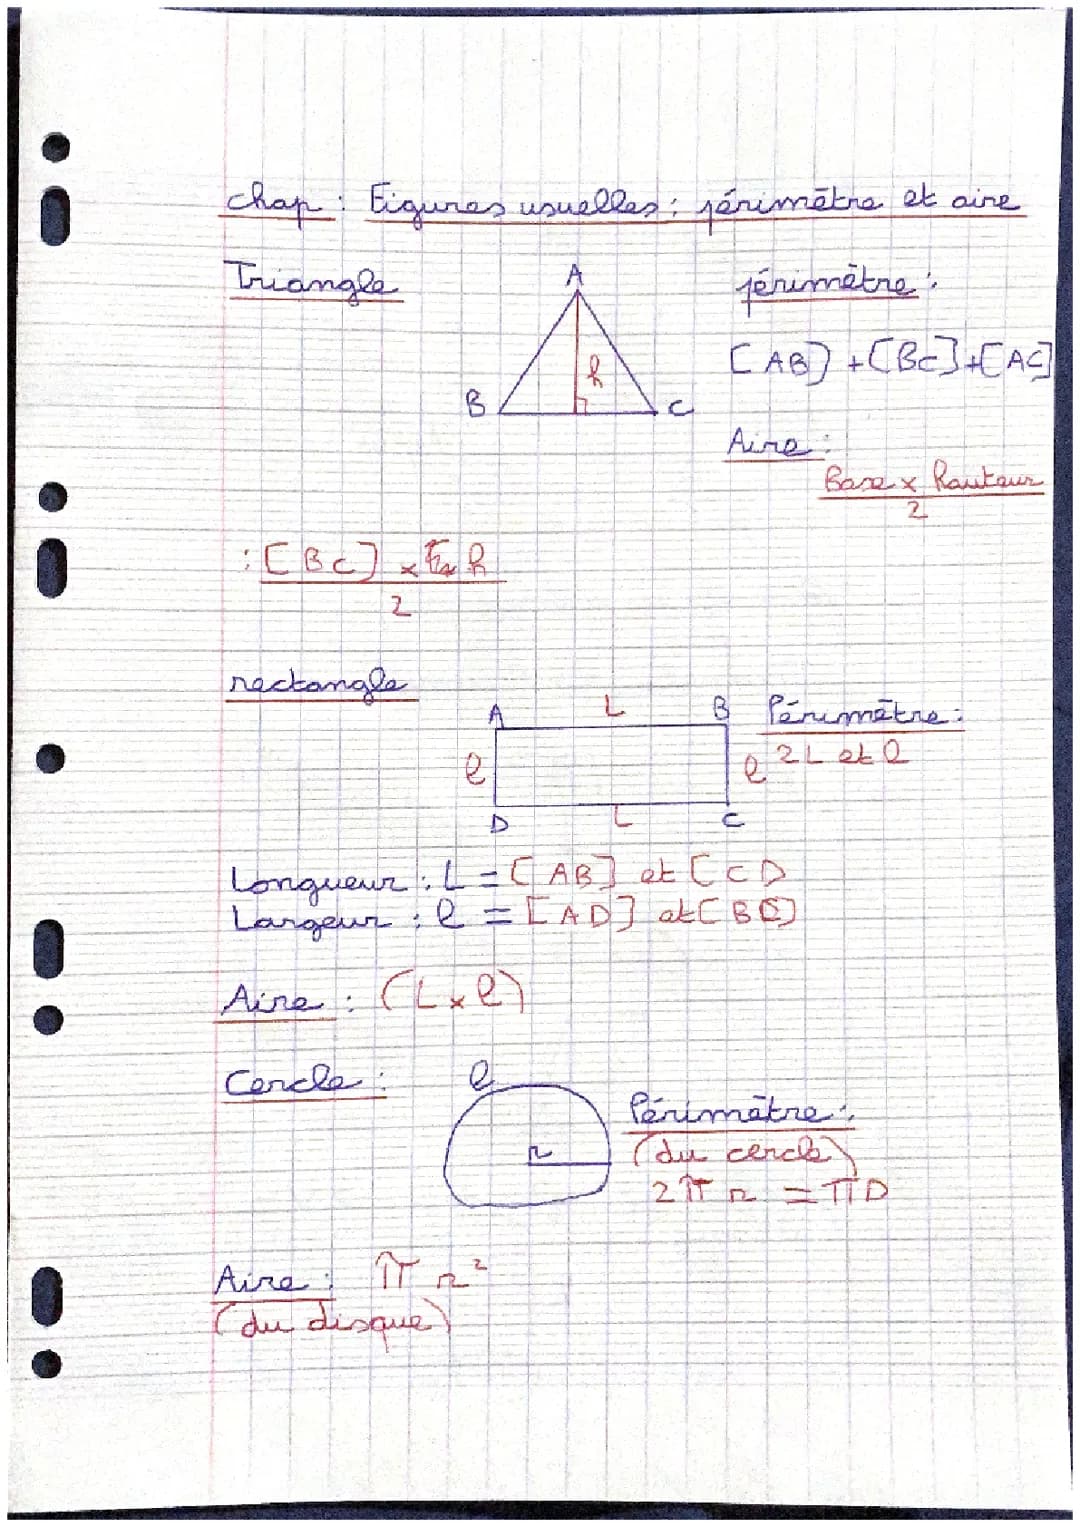 chap : Figures usuelles : périmètre et aire
Triangle
A
B
C
h
périmètre :
[AB] + [BC] + [AC]
Aire :
Base x hauteur
2
: [BC] x h
2
rectangle
A
L
B
l
l
D
L
C
Périmètre :
2L et l
Longueur : L = [AB] et [CD
Largeur : l = [AD] et [BC]
Aire : (L x l)
Cercle :
r
Périmètre :
(du cercle)
2π r = πD
Aire : π r²
(du disque)